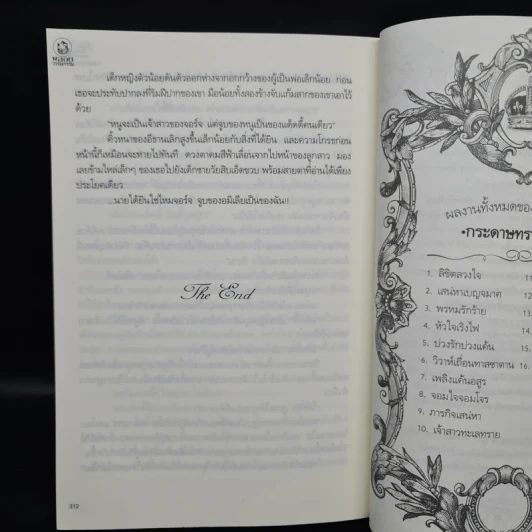 เด็กหญิงตัวน้อยดันตัวออกห่างจากอกกว้างของผู้เป็นพ่อเล็กน้อย ก่อน
เธอจะประทับปากลงที่ริมฝีปากของเขา มือน้อยทั้งสองข้างจับแก้มสากของเขาเอาไว้
ด้วย
“หนูจะเป็นเจ้าสาวของจอร์จ แต่จูบของหนูเป็นของแด๊ดดี้คนเดียว”
คิ้วหนาของอีธานเลิกสูงขึ้นเล็กน้อยกับสิ่งที่ได้ยิน และความโกรธก่อน
หน้านี้ก็เหมือนจะหายไปทันที ดวงตาคมสีฟ้าเลื่อนจากใบหน้าของลูกสาว มอง
เลยข้ามไหล่เล็กๆ ของเธอไปยังเด็กชายวัยสิบเอ็ดขวบ พร้อมสายตาที่อ่านได้เพียง
ประโยคเดียว
...นายได้ยินใช่ไหมจอร์จ จูบของอมิเลียเป็นของฉัน!!
The End
312
ผลงานทั้งหมดของ
•กระดาษทรา
1. ลิขิตลวงใจ
2. เสน่หาเบญจมาศ
3. พรหมรักร้าย
4. หัวใจเริงไฟ
5. บ่วงรักบ่วงแค้น
6. วิวาห์เถื่อนทาสซาตาน
7. เพลิงแค้นอสูร
8. จอมใจจอมโจร
9. ภารกิจเสน่หา
10. เจ้าสาวทะเลทราย
11
12.
13.
14.
15.
16.